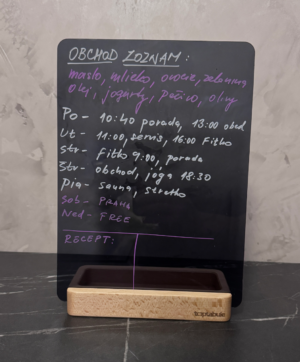 OBCHOD ZOZNAM:
maslo, mlieko, ovocie, zelenina
olej, jogurty, pečivo, olivy
Po - 10:40 porada, 13:00 obed
Ut - 11:00, servis, 16:00 Fitko
Str - Fitko 9:00, porada
Štr - obchod, joga 18:30
Pia - sauna, stretko
Sob - PRAHA
Ned - FREE
RECEPT:
toptabule